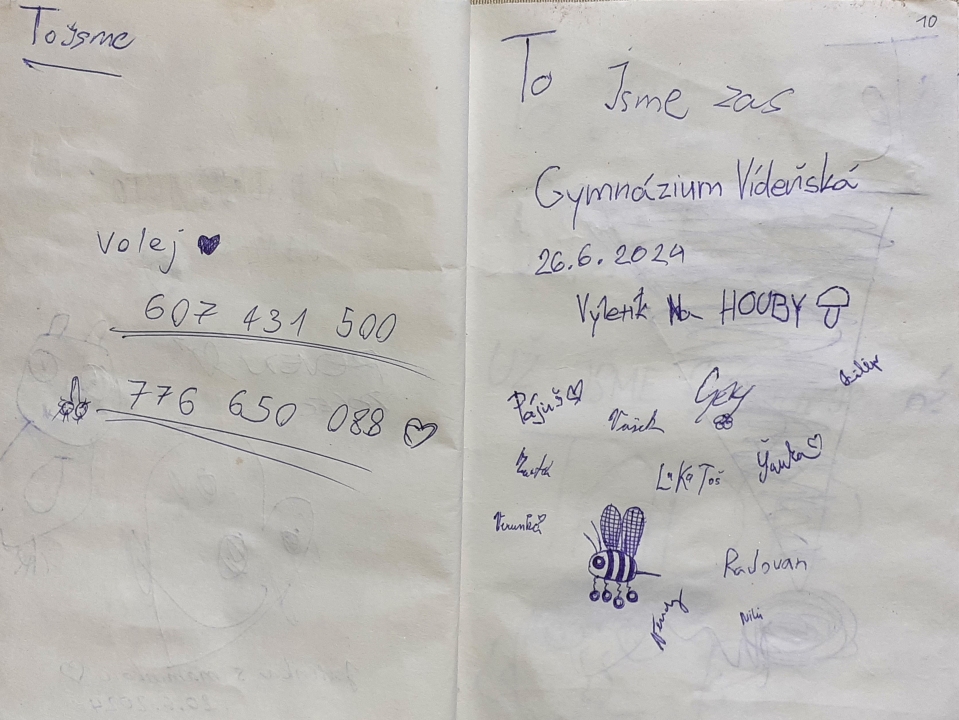 To jsme
Volej
607 431 500
776 650 088
10
To jsme zas
Gymnázium Vídeňská
26.6.2024
Výletík Na HOUBY
Pájuš
Vašek
LaKaToš
Verunka
Radovan